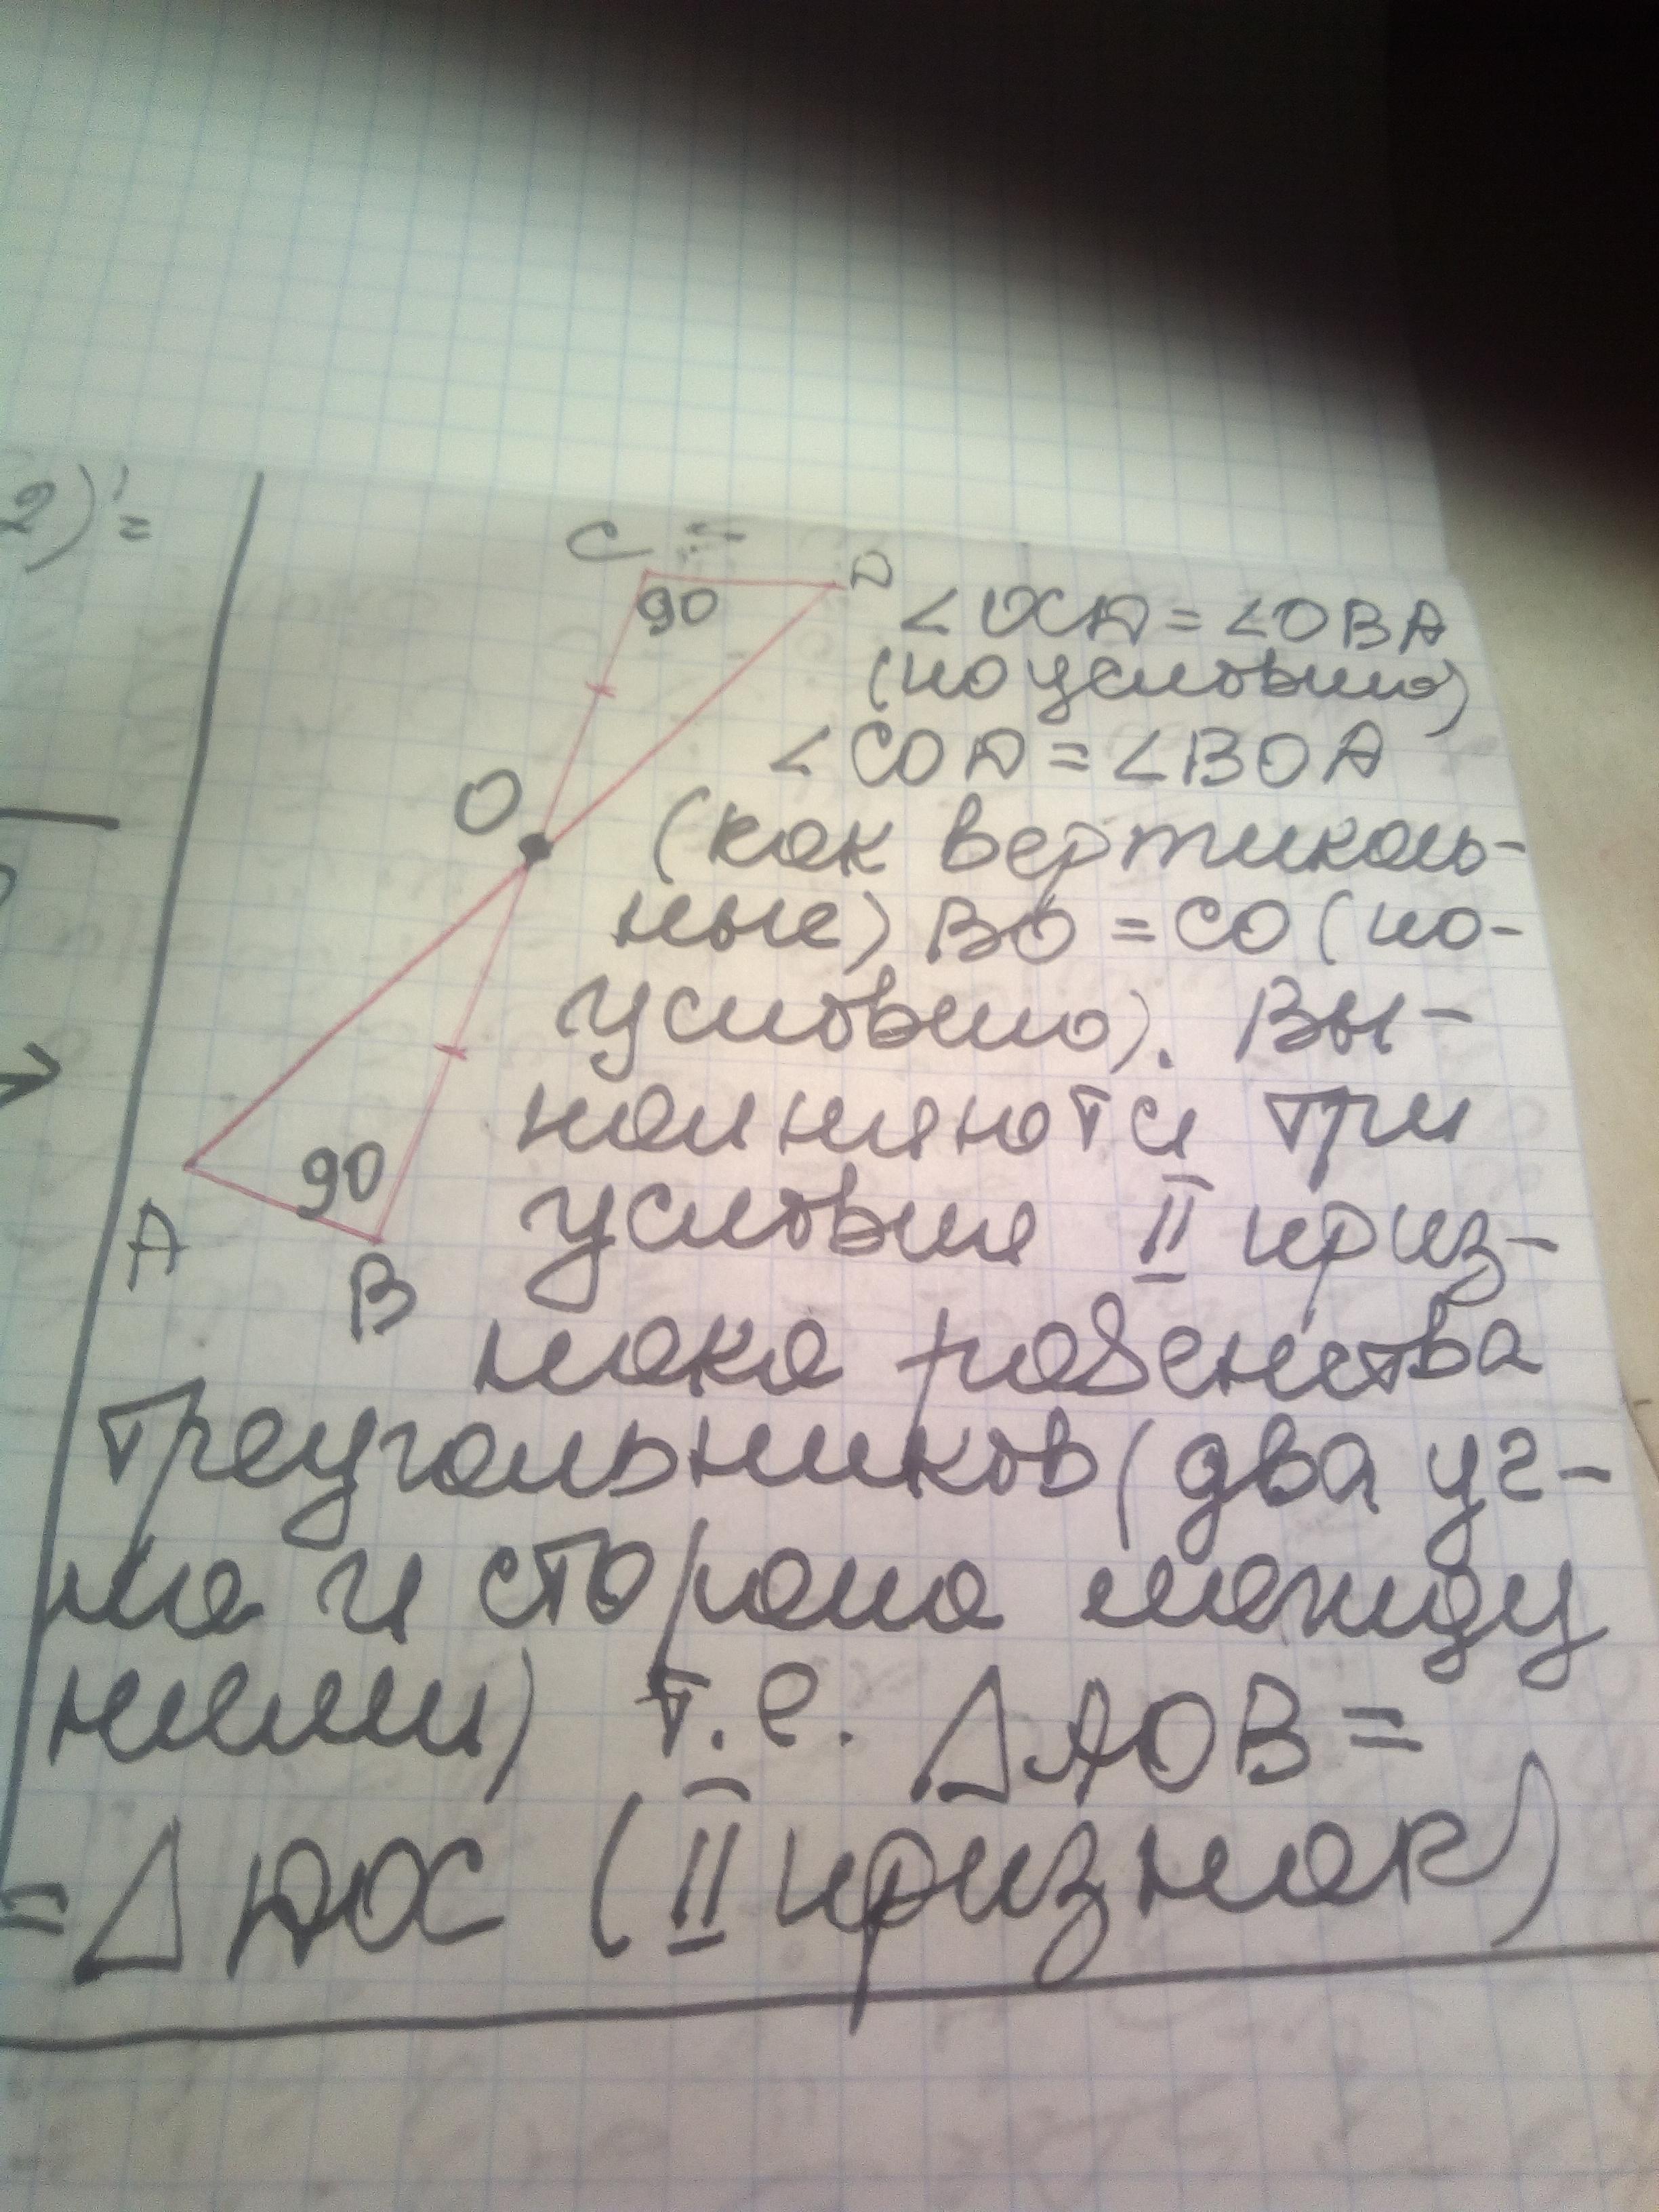 2)' =
C
D
90
∠OCD = ∠OBA
(по условию)
∠COD = ∠BOA
O
(как вертикаль-
ные) BO = CO (по-
условию). Вы-
полняются три
90
A
условия II приз-
B
нака равенства
треугольников (два уг-
ла и сторона между
ними) т.е. ΔAOB =
= ΔDOC (II признак)